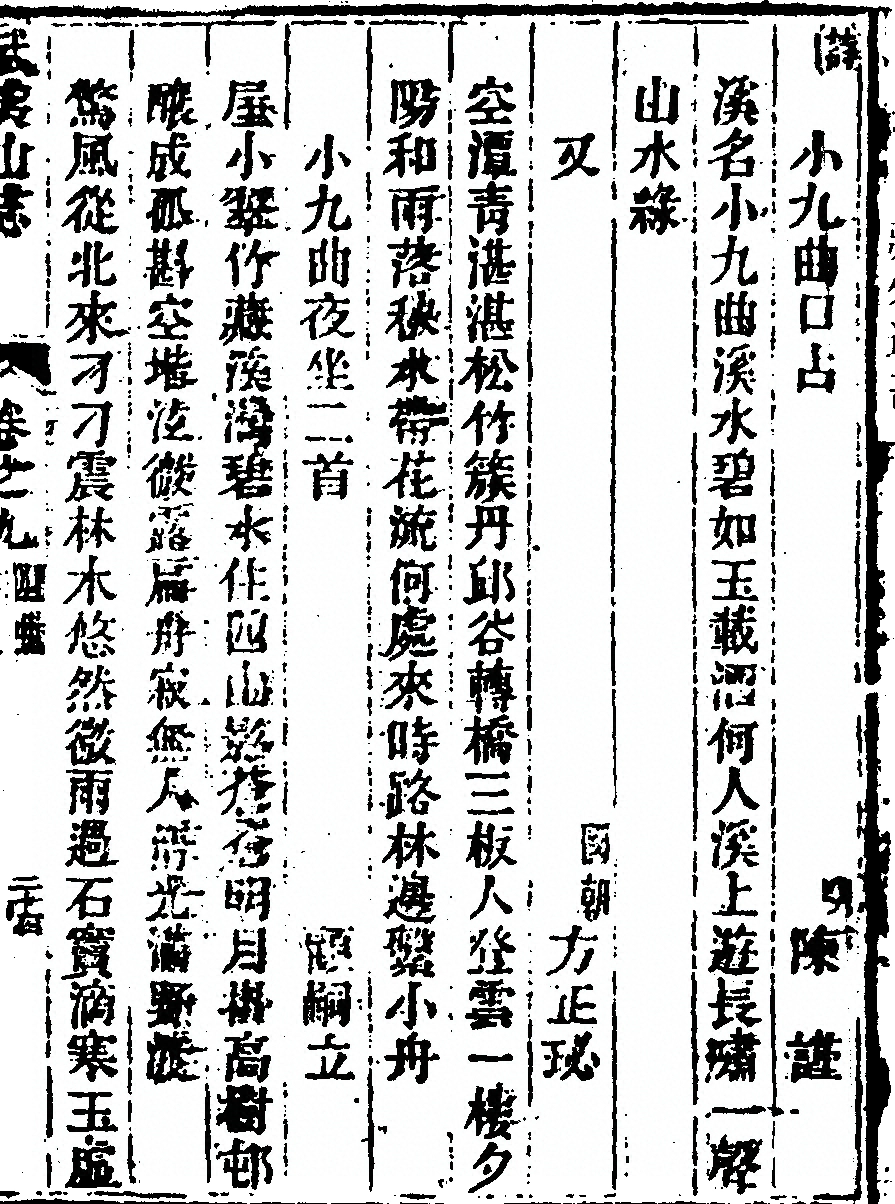 小九曲口占 明 陳謹
溪名小九曲溪水碧如玉載酒何人溪上遊長嘯一聲
山水綠
又 國朝 方正玭
空潭青湛湛松竹簇丹邱谷轉橋三板人登雲一樓夕
陽和雨落秋水帶花流何處來時路林邊繫小舟
小九曲夜坐二首 顧嗣立
屋小翠竹藏溪灣碧水住四山影蒼蒼明月掛高樹邨
釀成孤斟空堦泣微露扁舟寂無人清光滿野渡
驚風從北來刁刁震林木悠然微雨過石竇滴寒玉虛
武夷山志 卷之九